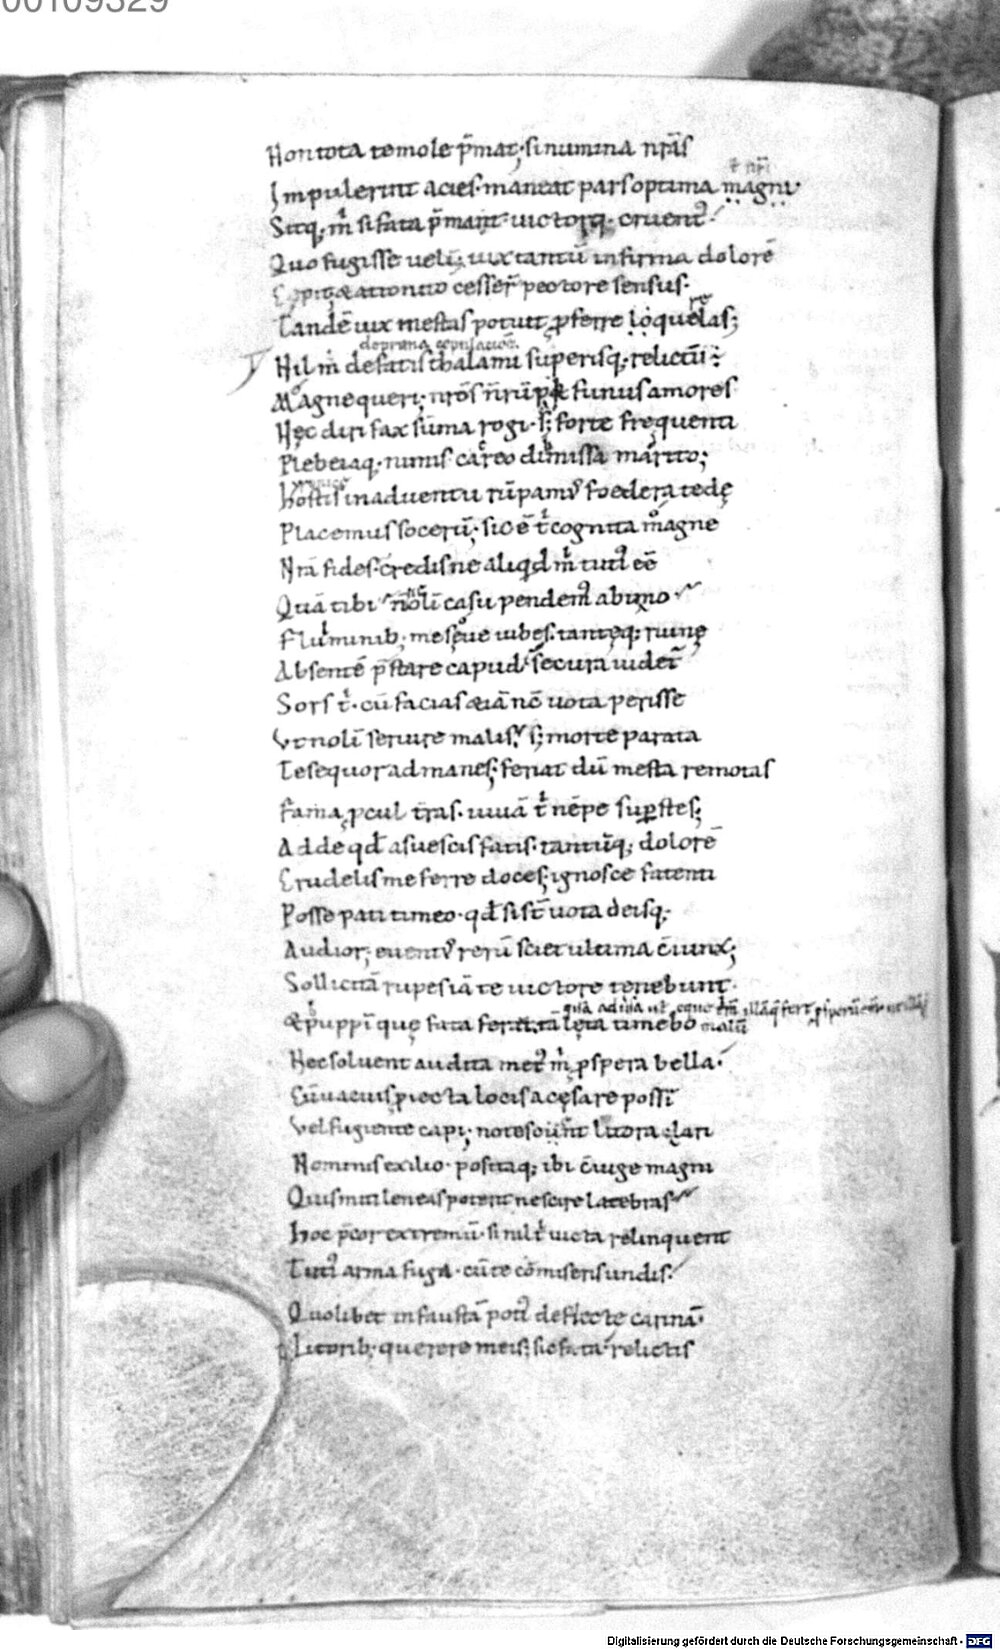 00109329
Non tota te mole p̄mat; si numina nr̄as
ł nr̄i
Impulerint acies. maneat pars optima magni.
Sitq; m̄ si fata p̄mant uictorq; cruent⁹.
Quo fugisse uelī; uix tantū infirma dolorē
cesser̄ pectore sensus.
Tandē uix mestas potuit ꝓferre loquelas;
Hil m̄ de fatis thalami superisq; relictū ē
Magne queri; nr̄os n̄ rūpit funus amores
Hęc diri fax sūma rogi. s; forte frequenti
Plebeiaq; nimis careo dimissa marito;
Hostis in aduentu rūpam⁹ foedera tedę
Placemus socerū; sic ē t̄ cognita magne
Nr̄a fides. credisne aliqd m̄ tuti⁹ eē
Quā tibi n̄ olī casu pendem⁹ ab uno
Fluminib; me sęue iubes. tantęq; ruinę
Absentē p̄stare capud. secura uidet̄
Sors t̄. cū facias etiā nc̄ uota perisse
Vt nolī seruire malis. s; morte parata
Te sequor ad manes; feriat dū mesta remotas
Fama ꝓcul tr̄as. uiuā t̄ nēpe suꝑstes;
Adde qd̄ asuescis fatis. tantūq; dolorē
Crudelis me ferre doces; ignosce fatenti
Posse pati timeo. qd̄ si st̄ uota deisq;
Audior; euent⁹ rerū sciet ultima c̄iunx;
Sollicitā rupes iā te uictore tenebunt.
Et puppī quę fata feret tā lęta timebo
malū
Nec soluent audita met⁹ m̄ ꝓspera bella.
Cū uacuis ꝓiecta locis a cęsare possī
Vel fugiente capi; notescunt litora clari
Nominis exilio. positaq; ibi c̄iuge magni
Quis mitileneas poterit nescire latebras
Hoc p̄cor extremū. si nil t̄ uicta relinquent
Tuti⁹ arma fuga. cū te cōmiseris undis.
Quolibet infaustā poti⁹ deflecte carinā.
Litorib; querere meis; sic fata relictis
Digitalisierung gefördert durch die Deutsche Forschungsgemeinschaft - DFG